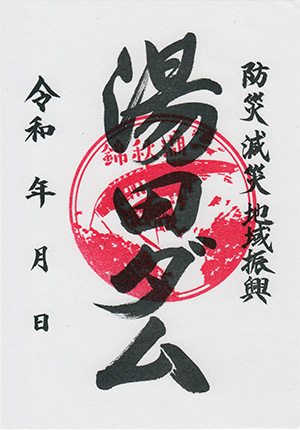 防災減災地域振興
湯田ダム
錦秋湖
令和 年 月 日